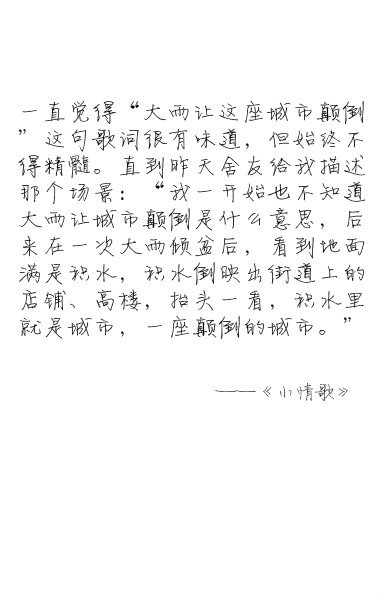 一直觉得“大雨让这座城市颠倒
”这句歌词很有味道，但始终不
得精髓。直到昨天舍友给我描述
那个场景：“我一开始也不知道
大雨让城市颠倒是什么意思，后
来在一次大雨倾盆后，看到地面
满是积水，积水倒映出街道上的
店铺、高楼，抬头一看，积水里
就是城市，一座颠倒的城市。”
——《小情歌》